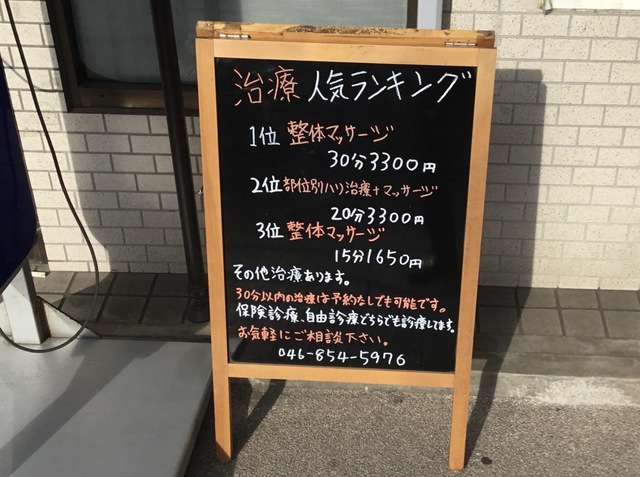 治療 人気ランキング
1位 整体マッサージ
30分3300円
2位 部位別ハリ治療+マッサージ
20分3300円
3位 整体マッサージ
15分1650円
その他治療あります。
30分以内の治療は予約なしでも可能です。
保険診療、自由診療どちらでも診療してます。
お気軽にご相談下さい。
046-854-5976